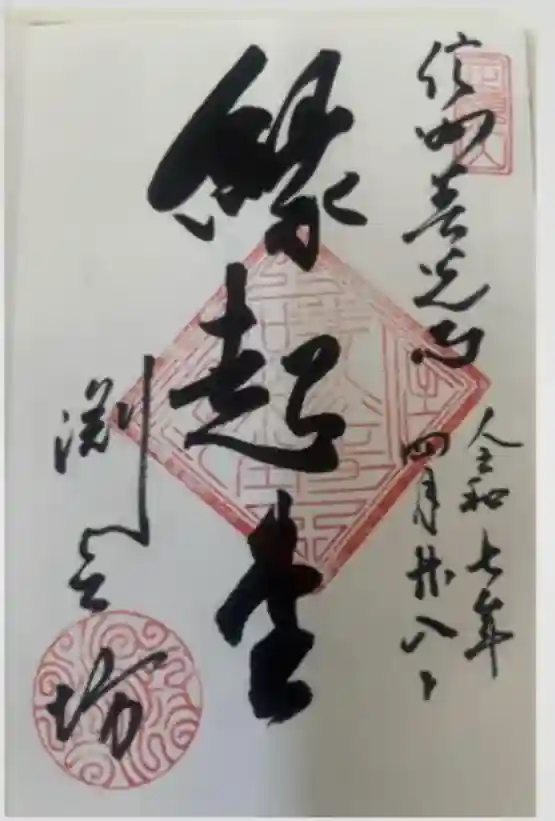 信州善光寺
令和七年
四月廿八日
縁起堂
渕之坊